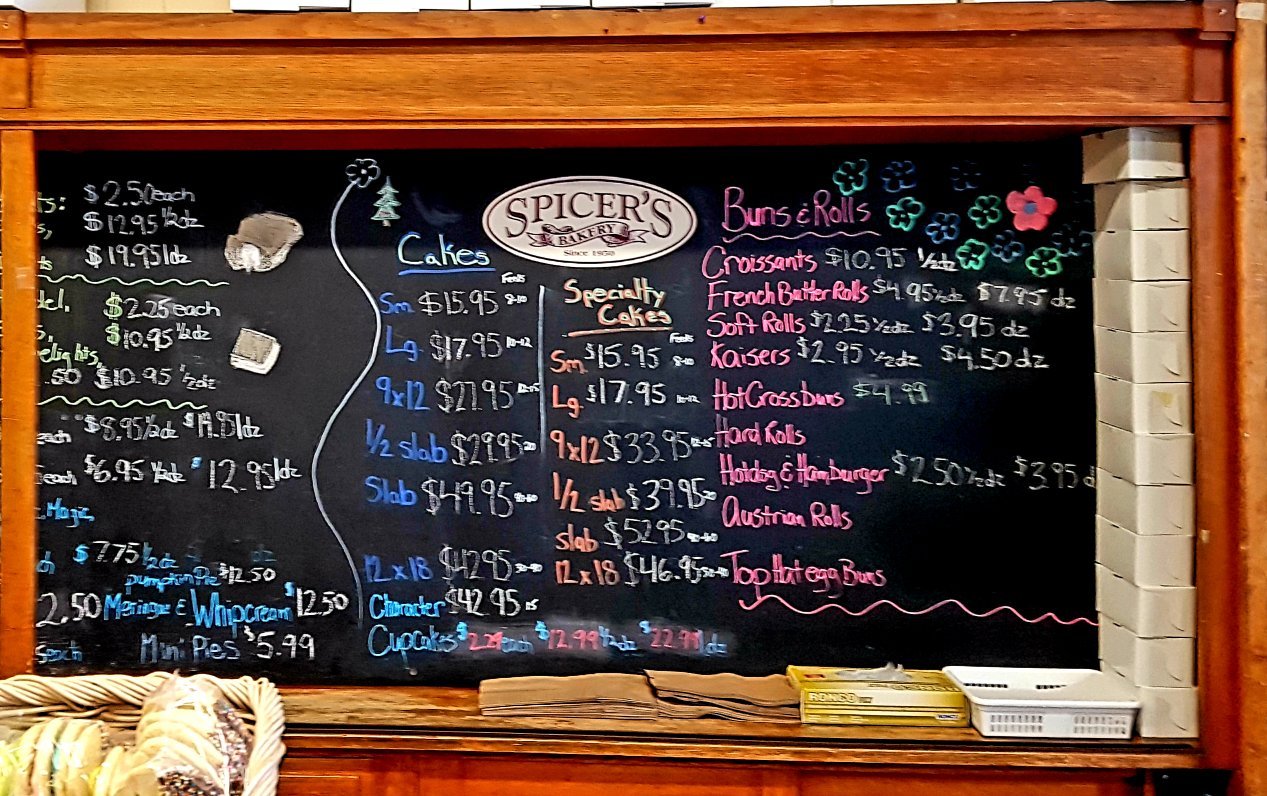 $2.50each
$12.95 ½dz
$19.95 1dz
$2.25each
$10.95 ½dz
elights,
.50 $10.95 ½dz
each $8.95½dz $19.95 1dz
each $6.95 ½dz $12.95 1dz
Magic,
$7.75 ½dz dz
pumpkin Pie $12.50
2.50 Meringue & Whipcream $12.50
each Mini Pies $5.99
Cakes
Feeds
Sm $15.95 8-10
Lg. $17.95 10-12
9x12 $27.95
½ slab $29.95
Slab $49.95
12x18 $42.95
Character $42.95 15
Cupcakes $2.29each $12.99½dz $22.99 1dz
SPICER'S
BAKERY
Since 1950
Specialty
Cakes
Feeds
Sm. $15.95 8-10
Lg. $17.95 10-12
9x12 $33.95
½ slab $39.95
slab $52.95
12x18 $46.95
Buns & Rolls
Croissants $10.95 ½dz
French Butter Rolls $4.95½dz $7.95 dz
Soft Rolls $2.25 ½dz $3.95 dz
Kaisers $2.95 ½dz $4.50 dz
Hot Cross buns $4.99
Hard Rolls
Hotdog & Hamburger $2.50½dz $3.95 d
Austrian Rolls
Top Hat egg Buns
RONCO